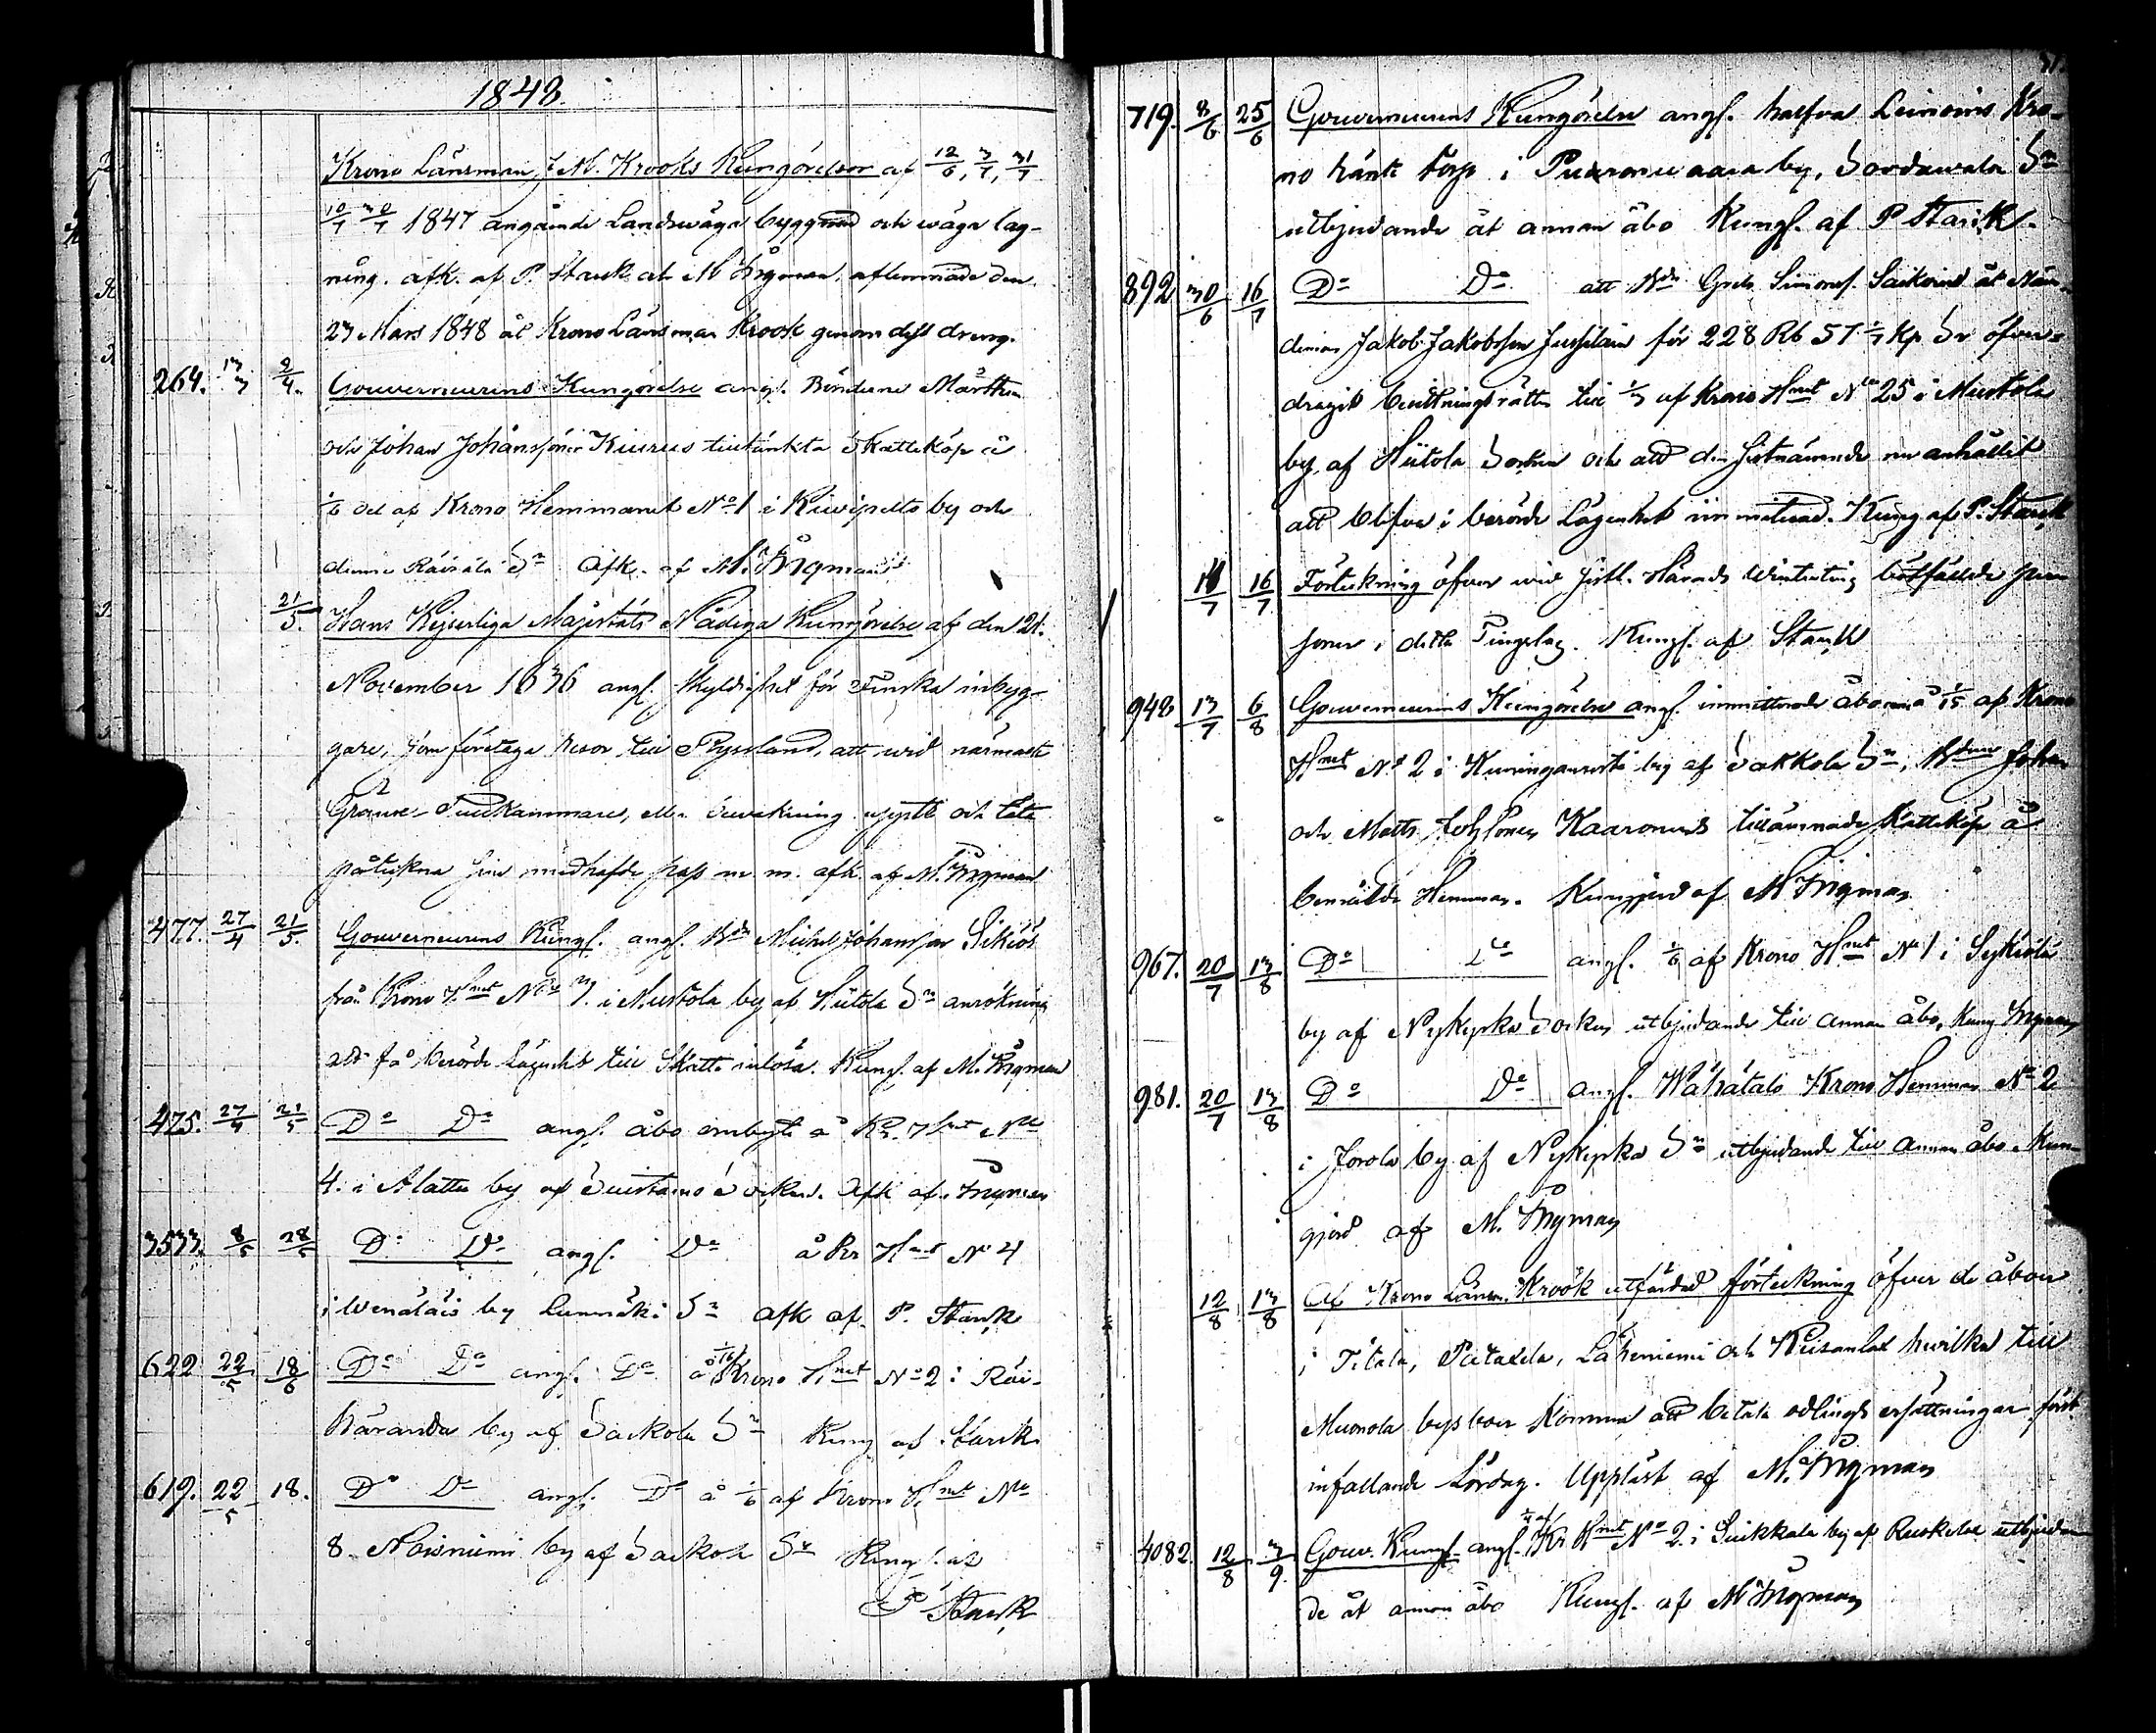 1848.
Krono Länsman J. N. Krooks Kungörelser af 12/6, 3/7, 31/7
10/7 30/7 1847 angående Landsvägs byggnad och wäga lag-
ning. afk. af P. Starck och M Frigman, aflemnade den
23 Mars 1848 åt Krono Länsman Krook genom dess dreng.
264. 13/3 2/4. Gouverneurens Kungörelse angf. Bönderne Mårthen
och Johan Johanssöner Kiurus tilltänkta Skatteköp å
1/6 del af Krono Hemmanet No 1 i Kiwipelto by och
denna Räisälä Sn Afk. af M. Frigman
21/5. Hans Kejserliga Majestäts Nådiga Kungörelse af den 21.
November 1836 angf. skyldighet för Finska inbyg-
gare, som företaga resor till Ryssland, att wid närmaste
Gräns-Tullkammare, eller bewakning uppte och låta
påteckna sine medhafde pass m. m. afk. af M. Frigman
477. 27/4 21/5. Gouverneurens Kungf. angf. Bdn Michel Johansson Sikiös
från Krono Hmt No 3. i Mustola by af Hiitola Sn ansökning
att få berörde Lägenhet till Skatte inlösa. Kungf. af M. Frigman
475. 27/4 21/5 Do Do angf. åbo ombyte å Kr. Hmt No
4. i Alattu by af Suistamo Socken. Afk af Frigman
3533. 8/5 28/5 Do Do angf. Do å Kr Hmt No 4
i by Sn afk af P. Starck
622 22/5 18/6 Do Do angf. Do å 1/16 Krono Hmt No 2 i Räi-
häranda by af Sackola Sn Kung af Starck
619. 22/5 18. Do Do angf. Do å 1/6 af Krono Hmt No
8 Noisniemi by af Sackola Sn Kungf. af
P Starck
719. 8/6 25/6 Gouverneurens Kungörelse angf. halfva Leinonis Kro-
no ränte Torp i Puuronwaara by, Sordawala Sn
utbjudande åt annan åbo Kungf. af P Starck.
892 30/6 16/7 Do Do att Bdn Simonsf. åt
Jakob Jakobsson Jussilain för 228 Rb 57 1/7 Kp Sr öfver-
dragit besittningsrätten till 1/3 af Krono Hmt No 25 i Mustola
by af Hiitola Socken och att den sistnämnde nu anhållit
att blifva i berörde Lägenhet immitterad. Kung af P. Starck
11/7 16/7 Förteckning öfver wid sistl. Härads Winterting bötfällde per-
soner i detta Tingslag. Kungf. af Starck
948 13/7 6/8 Gouverneurens Kungörelse angf. immitterade åboerna å 1/15 af Krono
Hmt No 2 i by af Sakkola Sn, Bdne Johan
och Matts Johssöner Kaaronens tillämnade Skatteköp å
bemälde Hemman. Kungjord af M Frigman
967. 20/7 13/8 Do Do angf. 1/6 af Krono Hmt No 1 i Sykiälä
by af Nykyrka Socken utbjudande till annan åbo, Kung Frigman
981. 20/7 13/8 Do Do angf. Wähätalo Krono Hemman No 2
i Jorola by af Nykyrka Sn utbjudande till annan åbo. Kun-
gjord af M. Frigman
12/8 13/8 Af Krono Länsm. Krook utfärdad förteckning öfver de åboer
i Titala, och hwilka till
Muonola bysboer komma att betala odlings ersättningar först
infallande Lördag. Uppläst af M. Frigman
4082. 12/8 3/9. Gouv. Kungf. angf. Kr Hmt No 2 i Leikkala by af Ruskeala utbjudan-
de åt annan åbo Kungf. af M Frigman